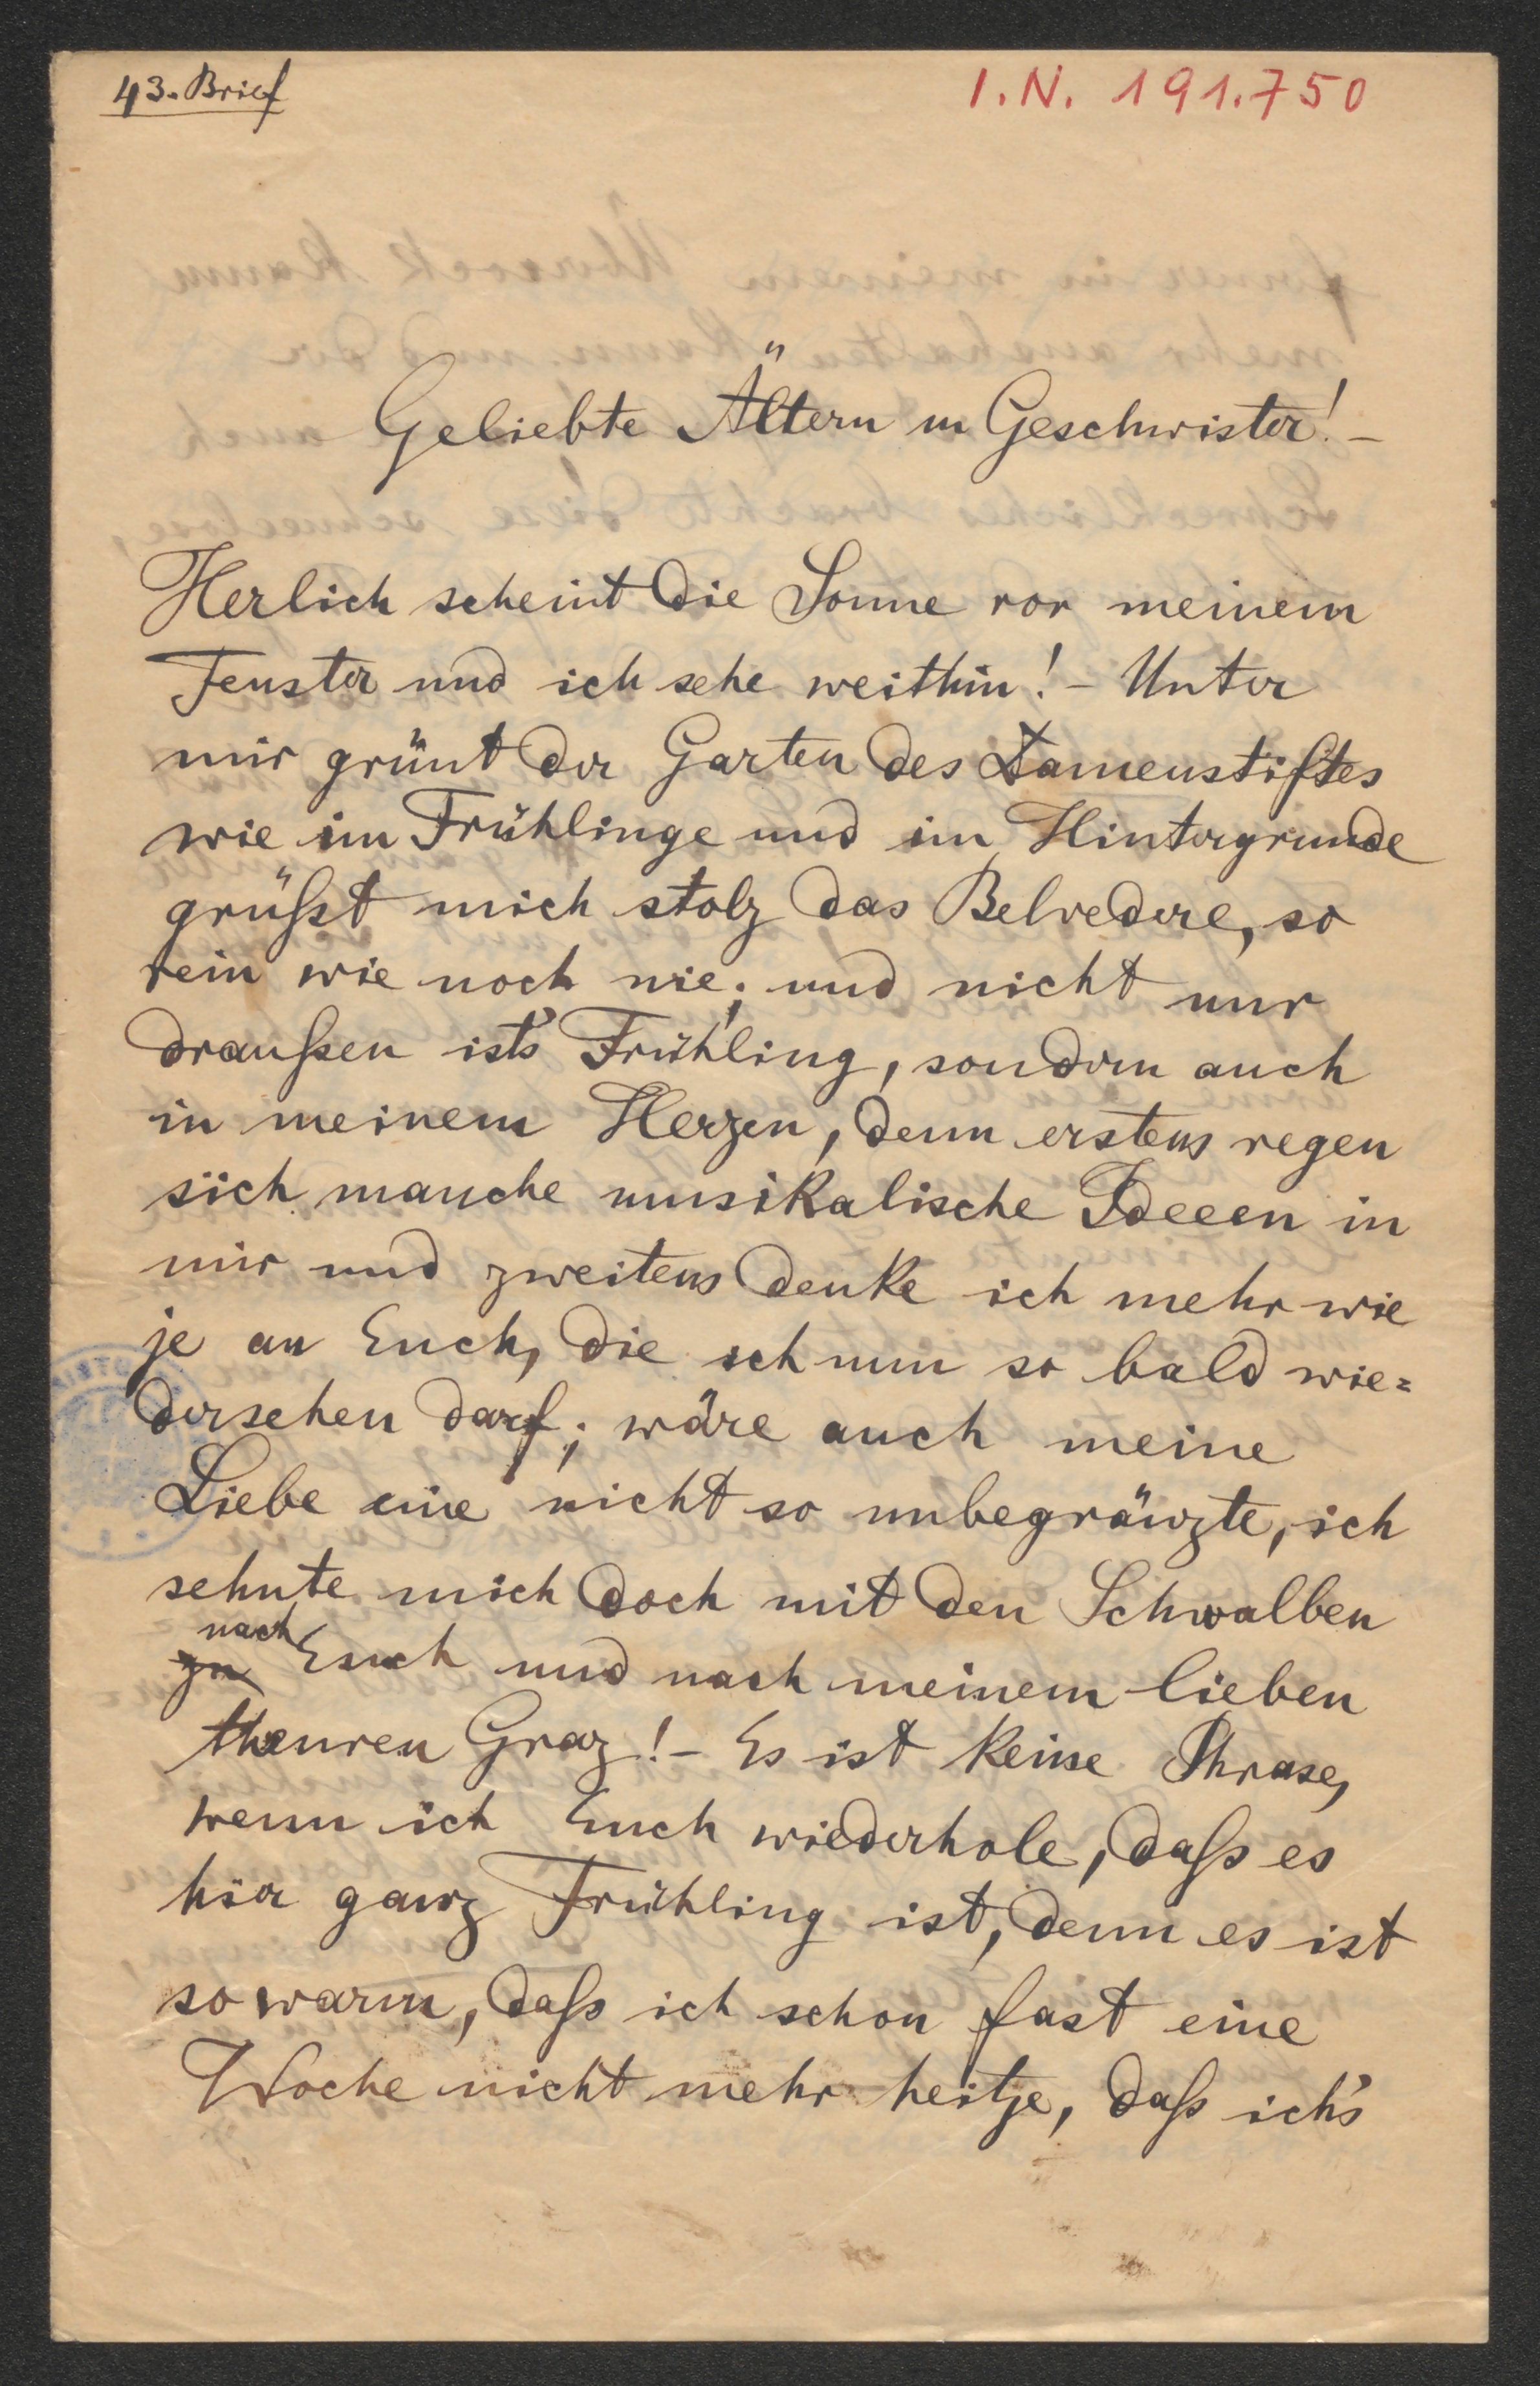 43. Brief
I.N. 191.750
Geliebte Ältern u Geschwister! –
Herlich scheint die Sonne vor meinem
Fenster und ich sehe weithin! – Unter
mir grünt der Garten des Damenstiftes
wie im Frühlinge und im Hintergrunde
grüßt mich stolz das Belvedere, so
rein wie noch nie; und nicht nur
draußen ist's Frühling, sondern auch
in meinem Herzen, denn erstens regen
sich manche musikalische Ideeen in
mir und zweitens denke ich mehr wie
je an Euch, die ich nun so bald wie=
dersehen darf; wäre auch meine
Liebe eine nicht so unbegränzte, ich
sehnte mich doch mit den Schwalben
nach
zu Euch und nach meinem lieben
theuren Graz! – Es ist keine Phrase,
wenn ich Euch wiederhole, daß es
hier ganz Frühling ist, denn es ist
so warm, daß ich schon fast eine
Woche nicht mehr heitze, daß ich's